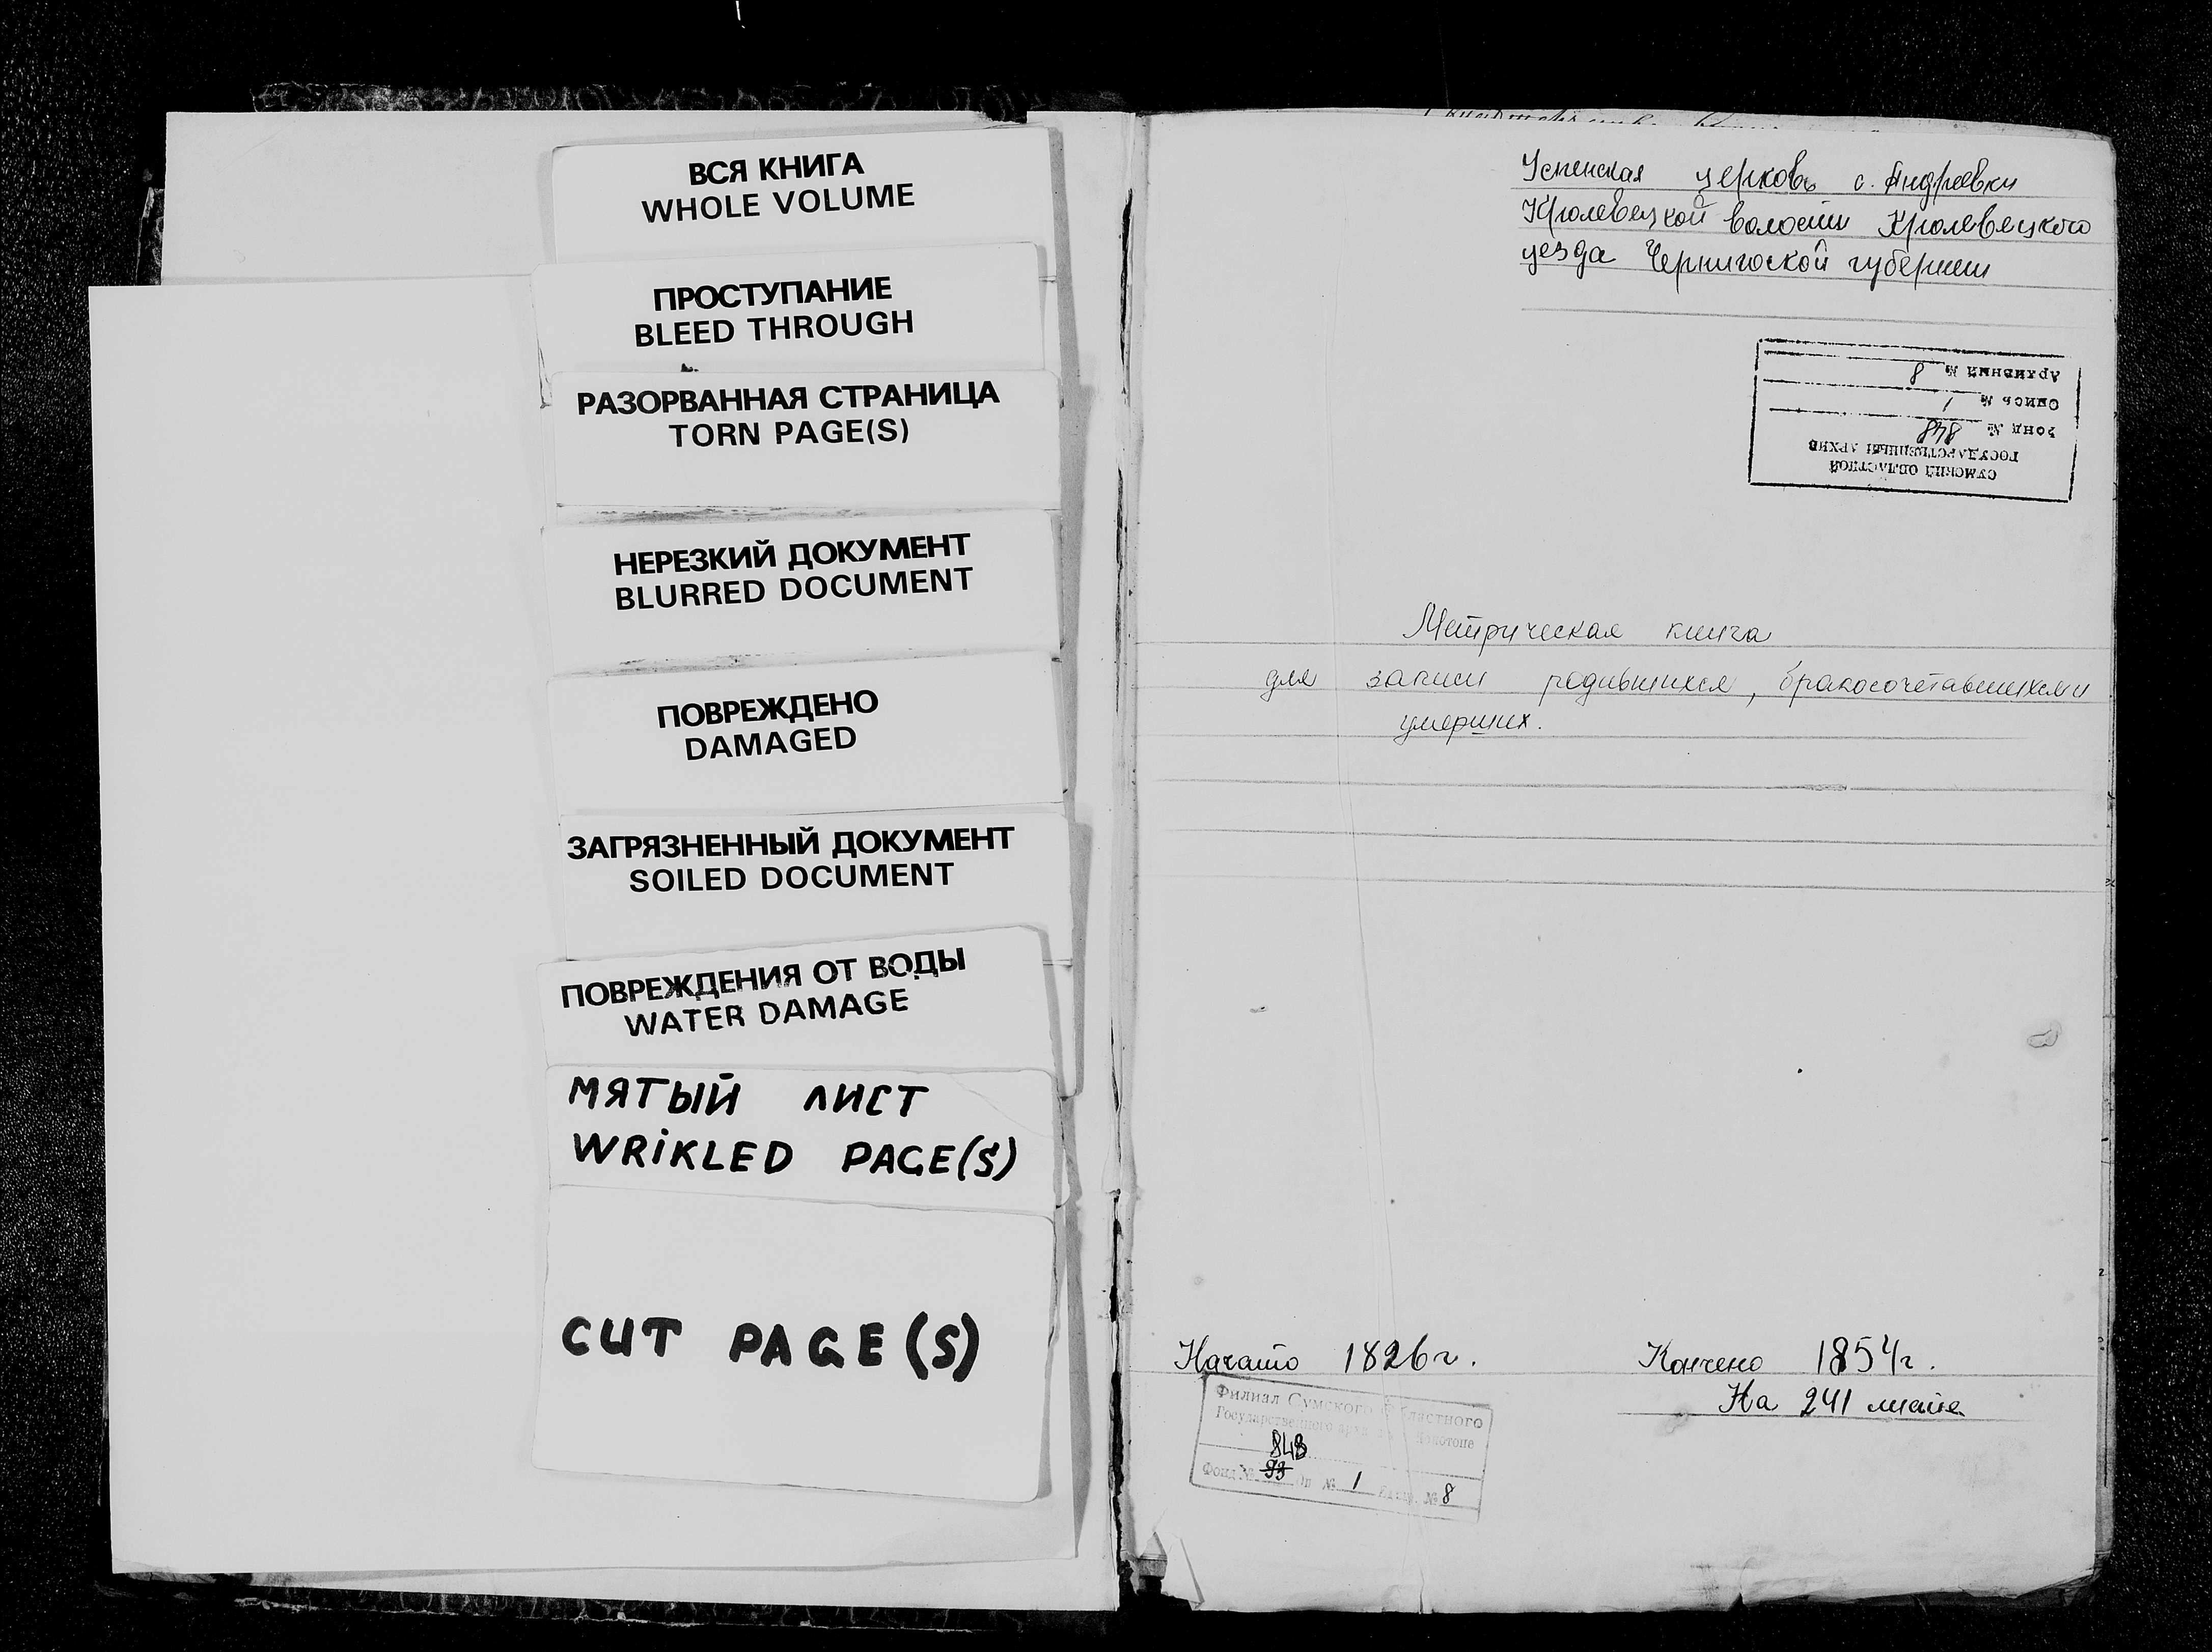 ВСЯ КНИГА
WHOLE VOLUME
ПРОСТУПАНИЕ
BLEED THROUGH
РАЗОРВАННАЯ СТРАНИЦА
TORN PAGE(S)
НЕРЕЗКИЙ ДОКУМЕНТ
BLURRED DOCUMENT
ПОВРЕЖДЕНО
DAMAGED
ЗАГРЯЗНЕННЫЙ ДОКУМЕНТ
SOILED DOCUMENT
ПОВРЕЖДЕНИЯ ОТ ВОДЫ
WATER DAMAGE
МЯТЫЙ ЛИСТ
WRiKLED PAGE(S)
CUT PAGE(S)
Успенская церковь с. Андреевки
Кролевецкой волости Кролевецкого
уезда Чернигоской губернии
СУМСКИЙ ОБЛАСТНОЙ
ГОСУДАРСТВЕННЫЙ АРХИВ
Фонд № 848
Опись № 1
Архивный № 8
Метрическая книга
для записи родившихся, бракосочетавшихся и
умерших.
Начато 1826 г.
Кончено 1854 г.
На 241 листе
Филиал Сумского областного
Государственного
848
Фонд № 93 № 1 № 8